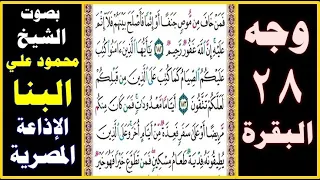 وجه
٢٨
البقرة
بصوت
الشيخ
محمود علي
البنا
الإذاعة
المصرية
فَمَنْ خَافَ مِن مُّوصٍ جَنَفًا أَوْ إِثْمًا فَأَصْلَحَ بَيْنَهُمْ فَلَا إِثْمَ
عَلَيْهِ إِنَّ اللَّهَ غَفُورٌ رَّحِيمٌ ١٨٢ يَا أَيُّهَا الَّذِينَ ءَامَنُوا كُتِبَ
عَلَيْكُمُ الصِّيَامُ كَمَا كُتِبَ عَلَى الَّذِينَ مِن قَبْلِكُمْ
لَعَلَّكُمْ تَتَّقُونَ ١٨٣ أَيَّامًا مَّعْدُودَاتٍ فَمَن كَانَ مِنكُم
مَّرِيضًا أَوْ عَلَى سَفَرٍ فَعِدَّةٌ مِّنْ أَيَّامٍ أُخَرَ وَعَلَى الَّذِينَ
يُطِيقُونَهُ فِدْيَةٌ طَعَامُ مِسْكِينٍ فَمَن تَطَوَّعَ خَيْرًا فَهُوَ خَيْرٌ